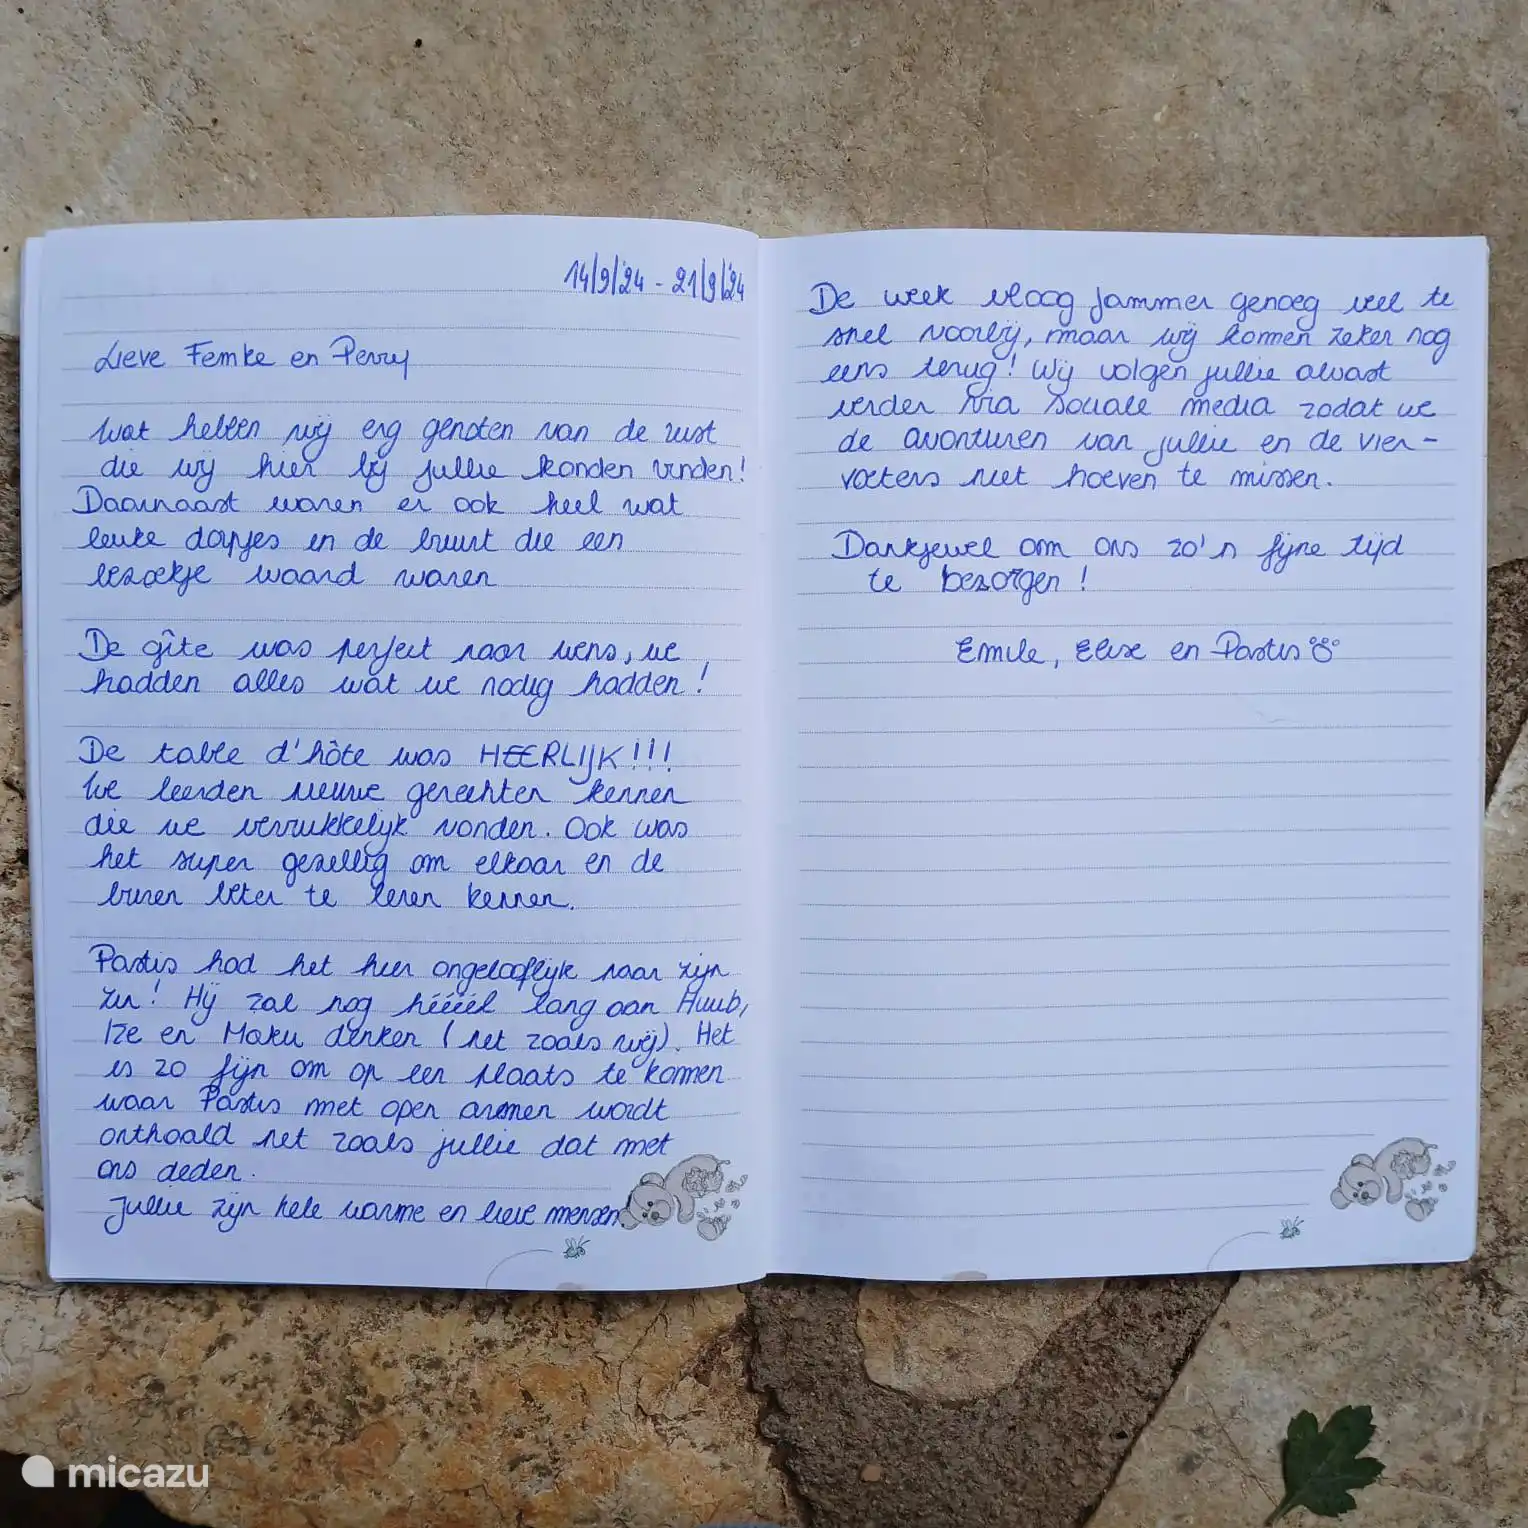 14/9/'24 - 21/9/'24
Lieve Femke en Perry
Wat hebben wij erg genoten van de rust
die wij hier bij jullie konden vinden!
Daarnaast waren er ook heel wat
leuke dorpjes in de buurt die een
bezoekje waard waren
De gîte was perfect naar wens, we
hadden alles wat we nodig hadden!
De table d'hôte was HEERLIJK!!!
We leerden nieuwe gerechten kennen
die we verrukkelijk vonden. Ook was
het super gezellig om elkaar en de
buren beter te leren kennen.
Pastis had het hier ongelooflijk naar zijn
zin! Hij zal nog héééél lang aan Huub,
Ize en Maku denken (net zoals wij). Het
is zo fijn om op een plaats te komen
waar Pastis met open armen wordt
onthaald net zoals jullie dat met
ons deden.
Jullie zijn hele warme en lieve mensen.
De week vloog jammer genoeg veel te
snel voorbij, maar wij komen zeker nog
eens terug! Wij volgen jullie alvast
verder via sociale media zodat we
de avonturen van jullie en de vier-
voeters niet hoeven te missen.
Dankjewel om ons zo'n fijne tijd
te bezorgen!
Emile, Elise en Pastis
micazu